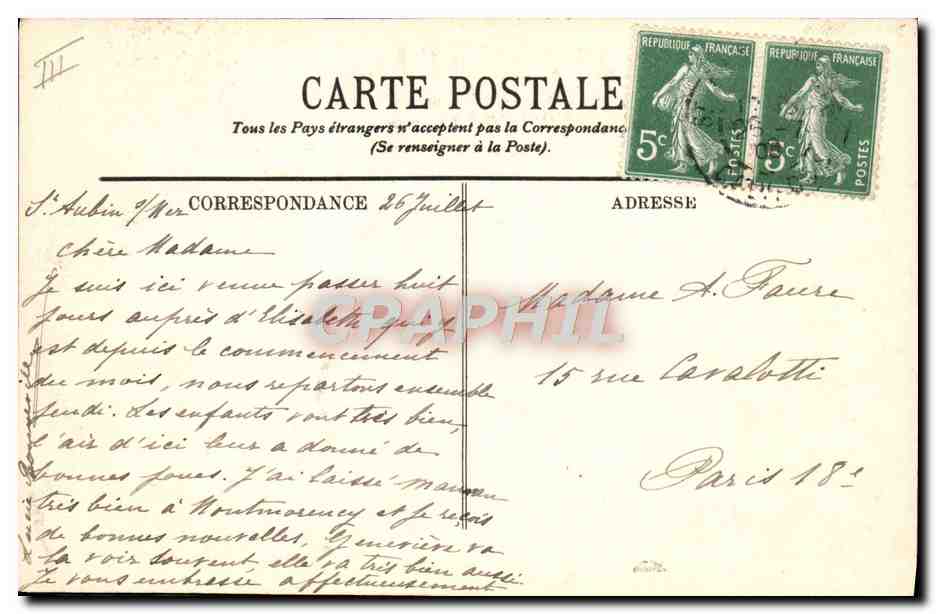 III
CARTE POSTALE
Tous les Pays étrangers n'acceptent pas la Correspondanc
(Se renseigner à la Poste).
REPUBLIQUE FRANÇAISE
5c
POSTES
REPUBLIQUE FRANÇAISE
5c
POSTES
CORRESPONDANCE
St Aubin s/Mer 26 Juillet
Chère Madame
Je suis ici venue passer huit
jours auprès d'Elisabeth qui y
est depuis le commencement
du mois, nous repartons ensemble
jeudi. Les enfants vont très bien,
l'air d'ici leur a donné de
bonnes joues. J'ai laissé maman
très bien à Montmorency et je reçois
de bonnes nouvelles, Geneviève va
la voir souvent, elle va très bien aussi
Je vous embrasse affectueusement
ADRESSE
Madame A. Faure
15 rue Cavalotti
Paris 18e
CPAPHIL